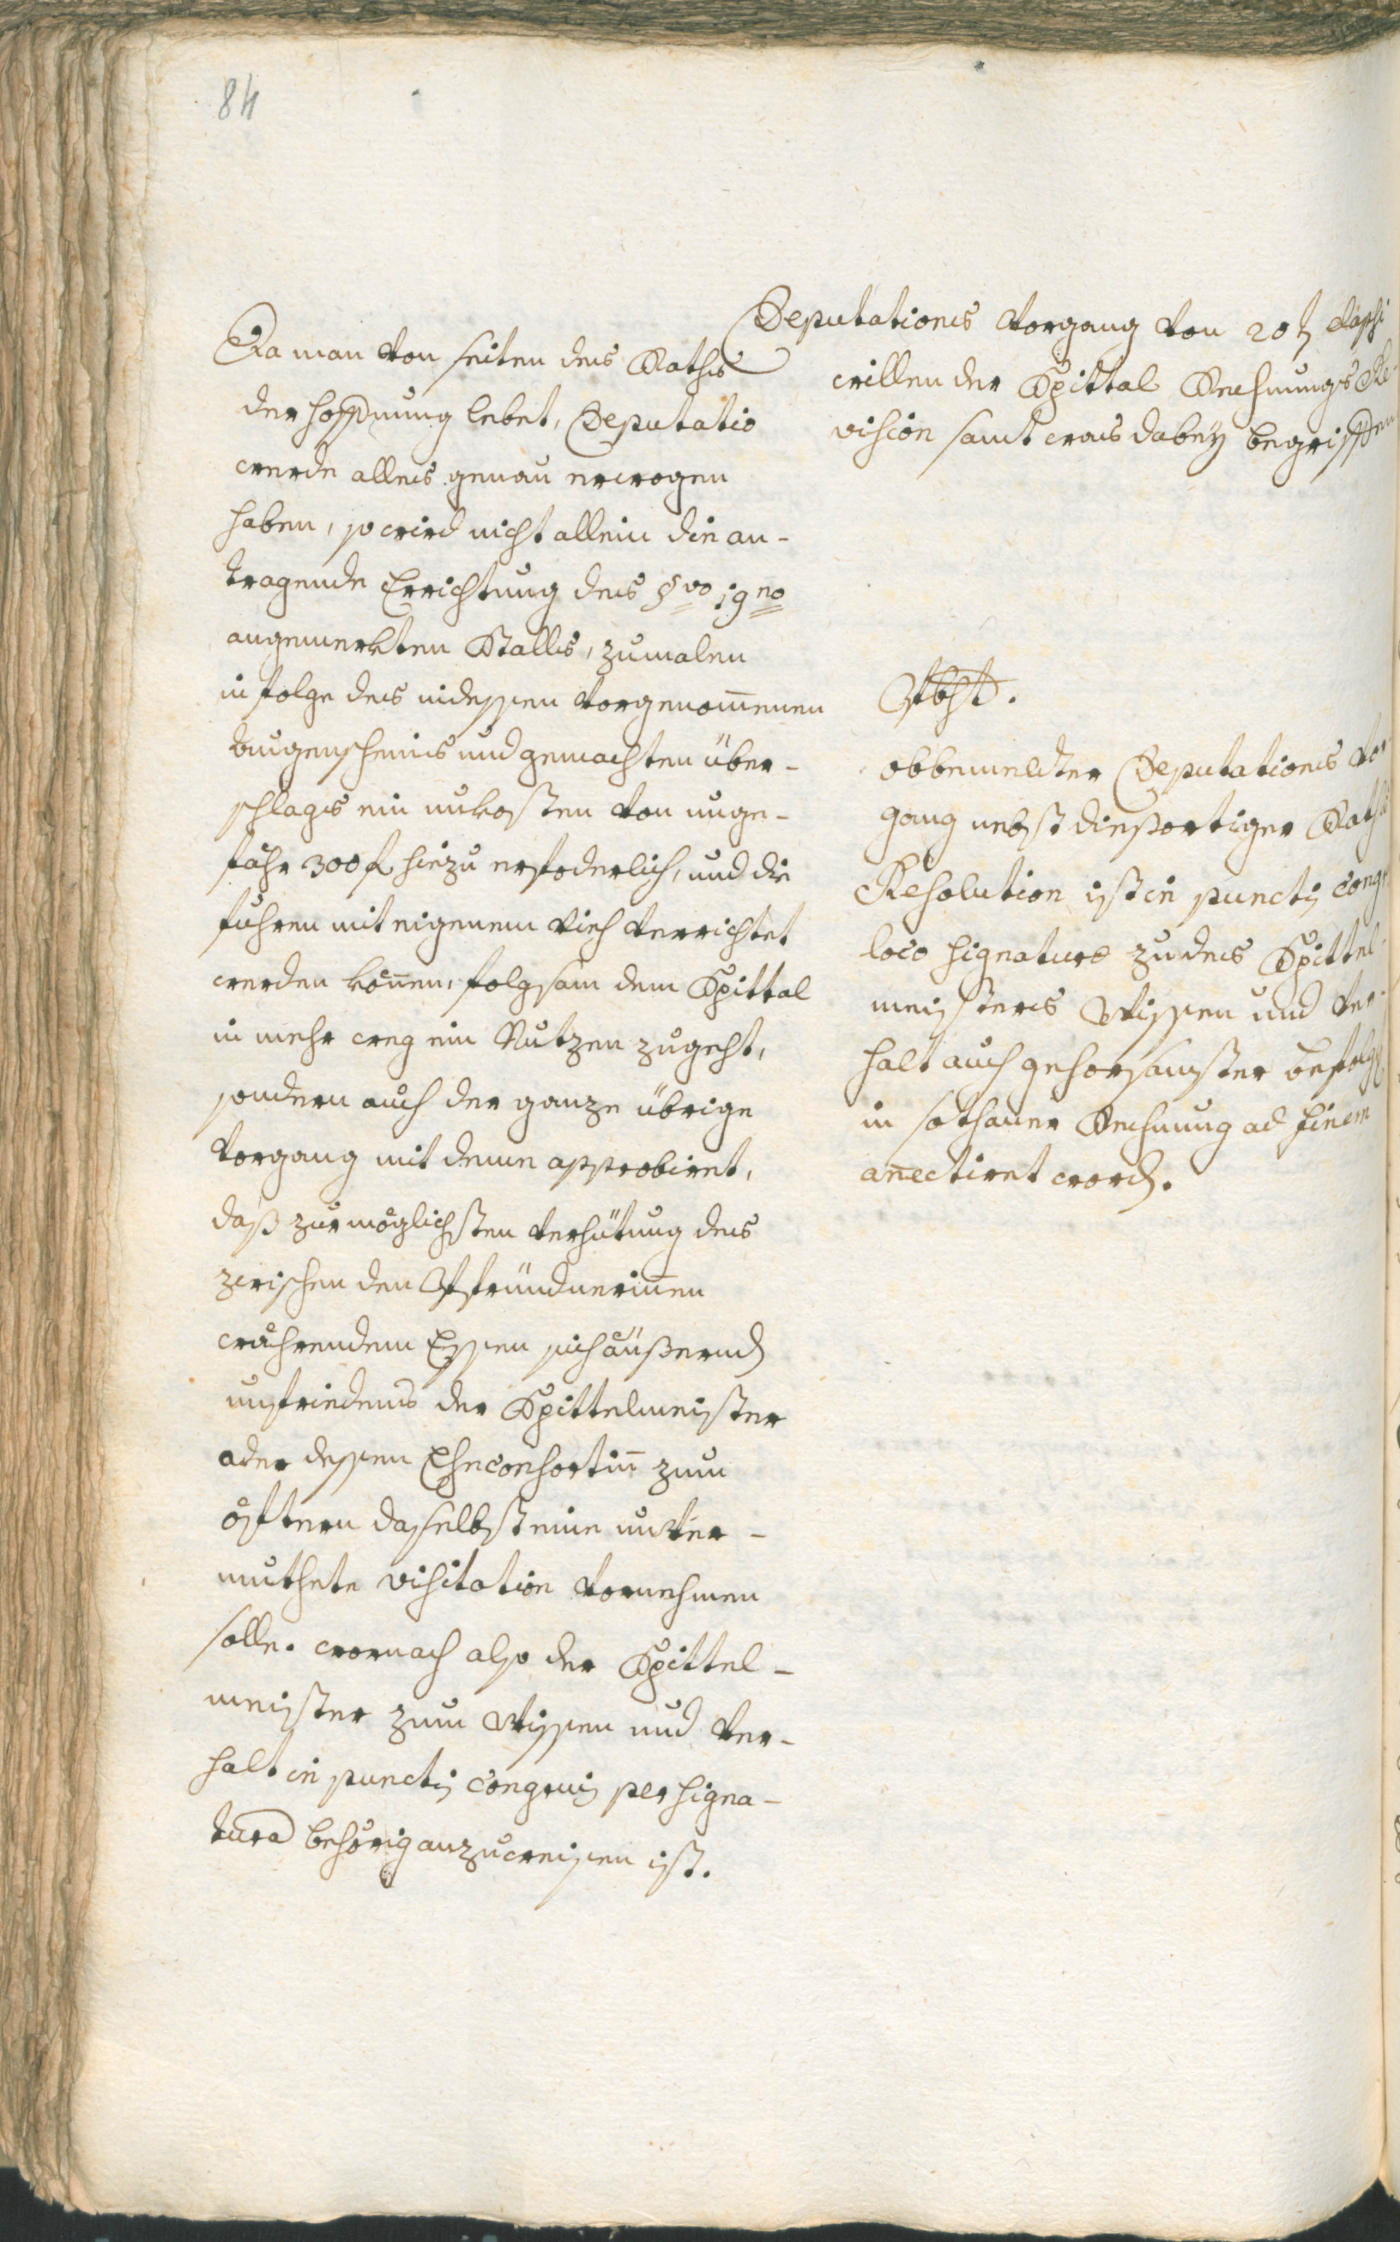 84
Da man von seiten des Raths
der hoffnung lebet, Deputatio
werde alles genau erwogen
haben, so wird nicht allein die an-
tragende Errichtung des §vo 19no
angemerkten Stalls, zumalen
in folge des indessen vorgenom̄enen
augenscheins und gemachten über-
schlags ein unkosten von unge-
fähr 300 f hiezu erfoderlich, und die
fuhren mit eigenem Vieh verrichtet
werden kön̄en, folgsam dem Spittal
in mehr weg ein Nutzen zugeht,
sondern auch der ganze übrige
Vorgang mit deme approbiret,
daß zur möglichsten verhütung des
zwischen den Pfründnerin̄en
währendem Essen sich äußernd
unfriedens der Spittelmeister
oder dessen Eheconsortin̄ zum
öftern daselbst eine unver-
muthete visitation vornehmen
solle. wornach also der Spittel-
meister zum Wissen und ver-
halt in puncti congrui per signa-
tura behörig anzuweisen ist.
Deputations Vorgang von 20
willen der Spittal Rechnungs Re-
vision samt was dabey begriffen
obbemeldter Deputations Vor
gang nebst dießortiger Raths
Resolution ist in puncti congr
loco signaturæ zu des Spittel-
meisters Wissen und ver-
halt auch gehorsamster befolg
in sothaner Rechnung ad finem
an̄ectiret word.